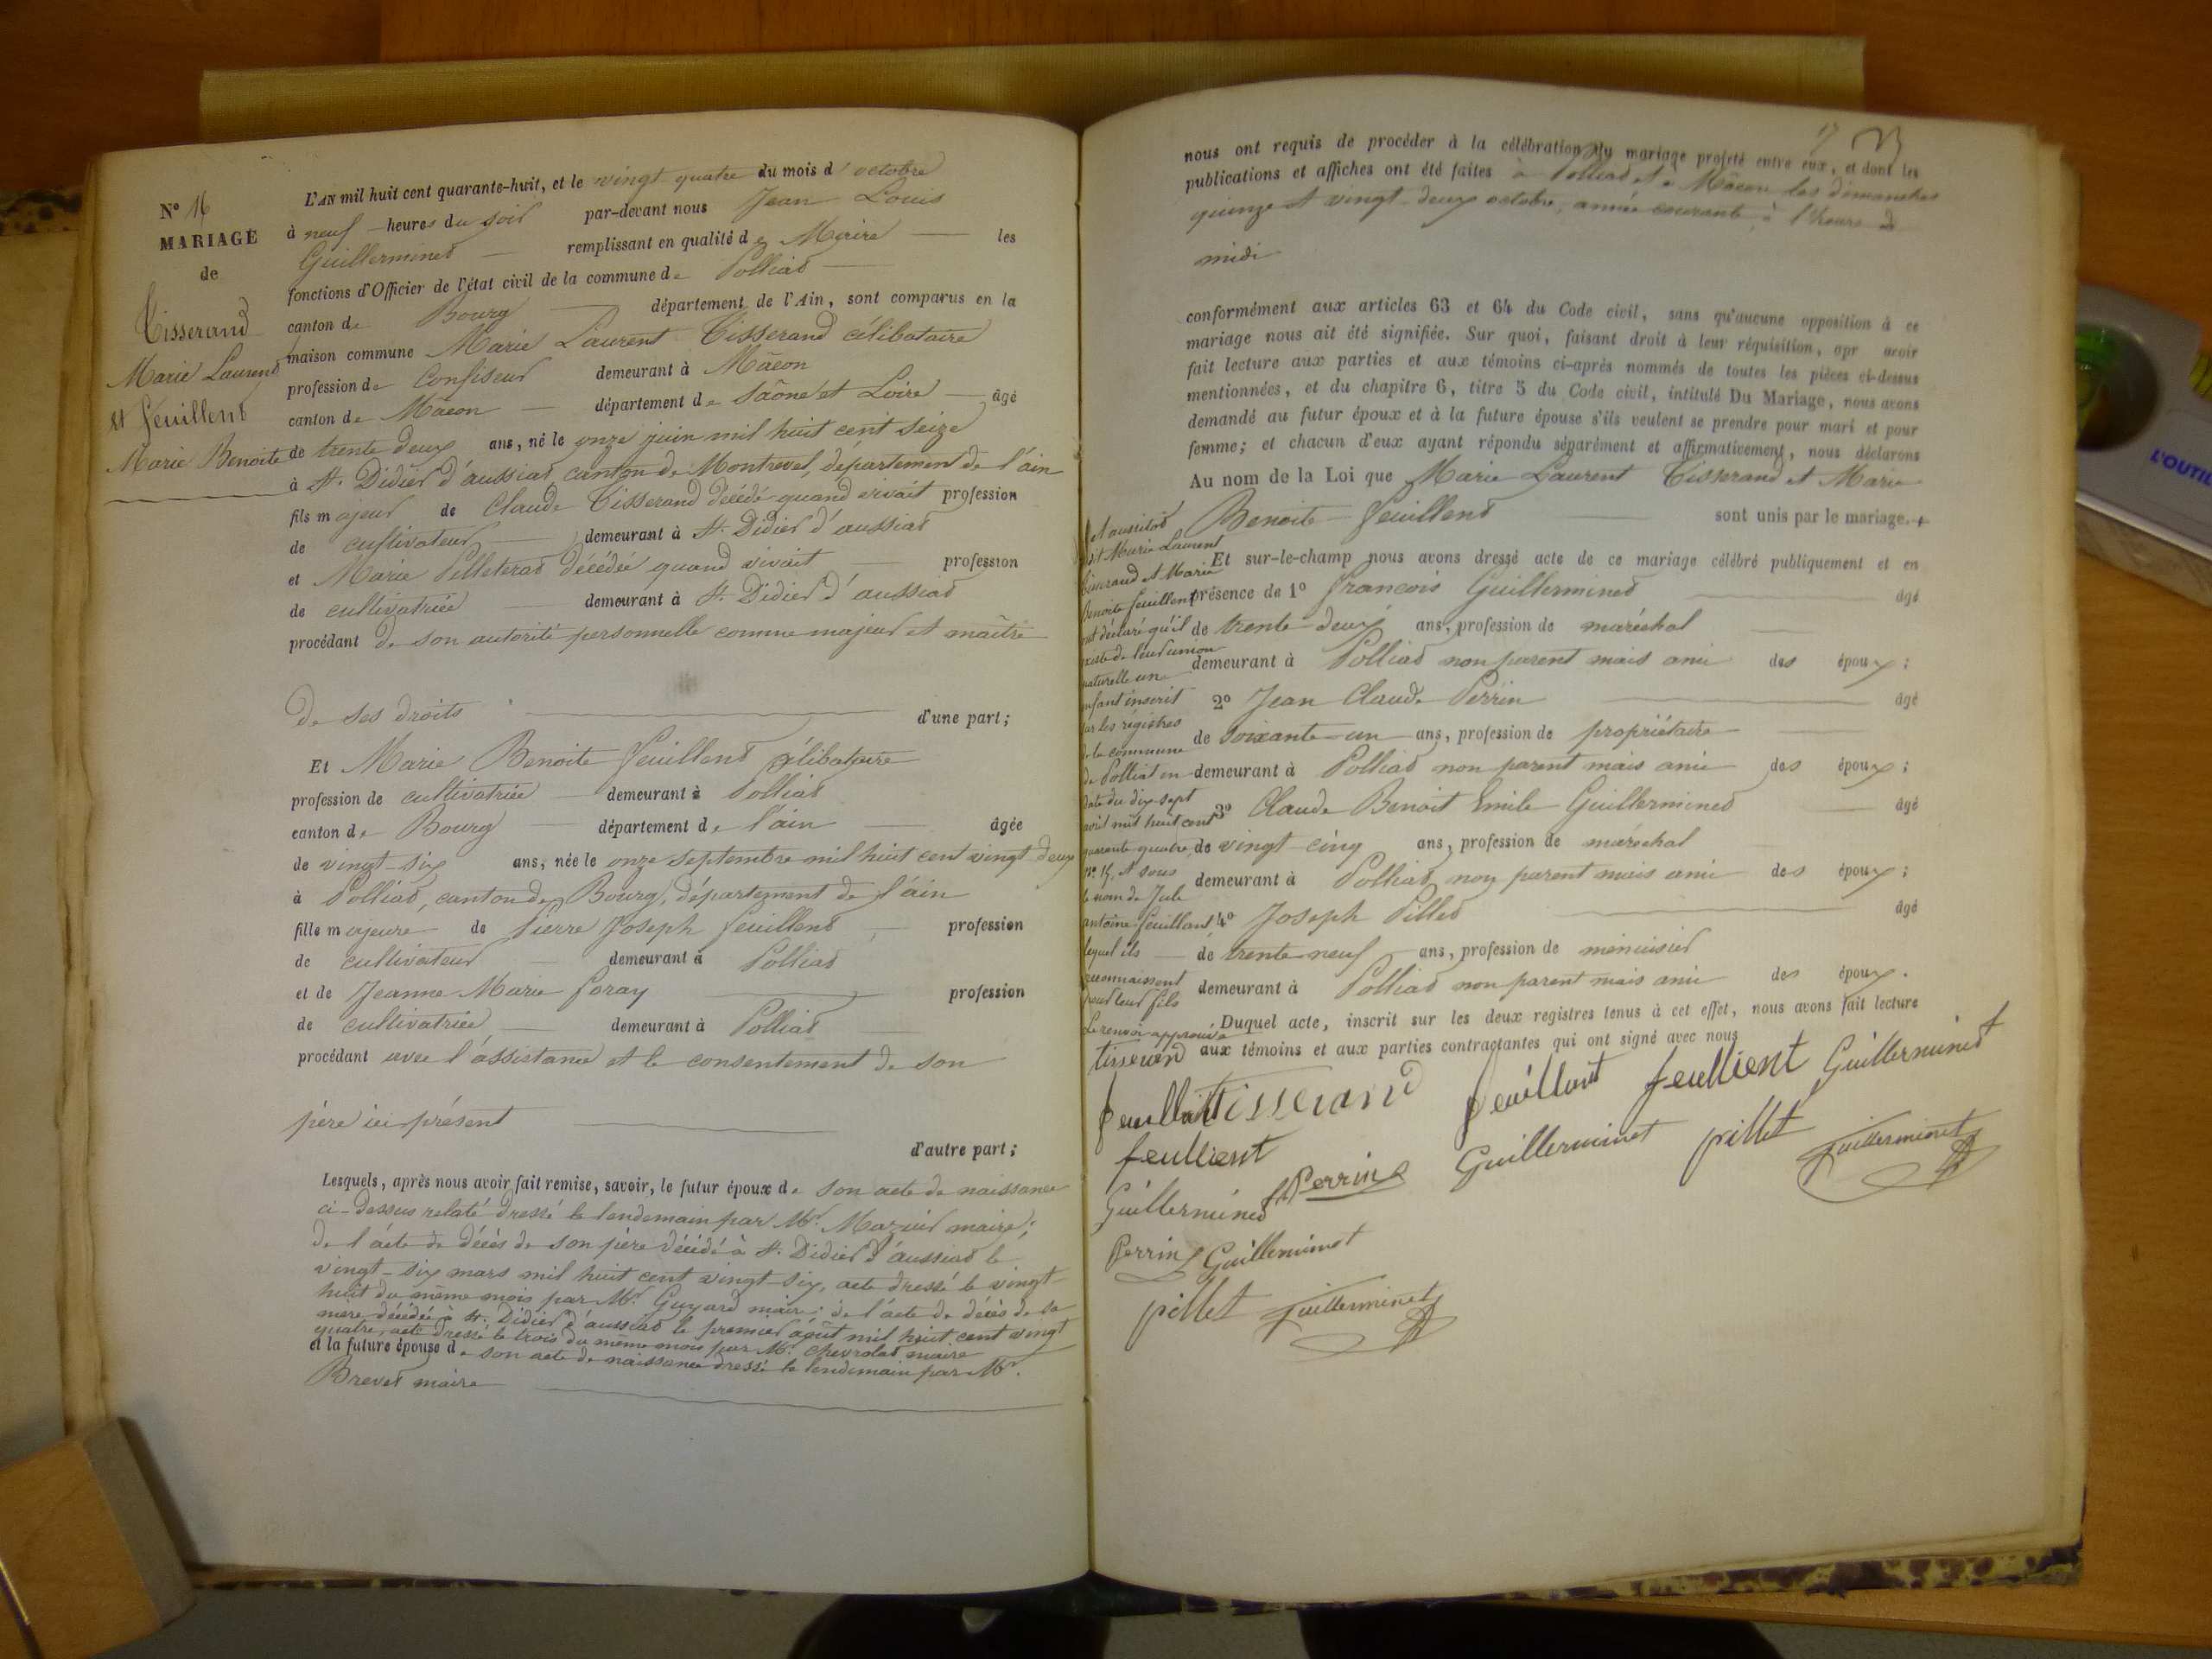 N° 16
MARIAGE
de
Tisserand
Marie Laurent
et Feuillent
Marie Benoite
L'AN mil huit cent quarante-huit, et le vingt quatre du mois d'octobre
à neuf heures du soir par-devant nous Jean Louis
Guillerminet remplissant en qualité de Maire les
fonctions d'Officier de l'état civil de la commune de Polliat
canton de Bourg département de l'Ain, sont comparus en la
maison commune Marie Laurent Tisserand célibataire
profession de Confiseur demeurant à Mâcon
canton de Mâcon département de Sâone et Loire âgé
de trente deux ans, né le onze juin mil huit cent seize
à St. Didier d'aussiat canton de Montrevel, département de l'ain
fils majeur de Claude Tisserand décédé quand vivait profession
de cultivateur demeurant à St. Didier d'aussiat
et Marie Pelleterat décédée quand vivait profession
de cultivatrice demeurant à St. Didier d'aussiat
procédant de son autorité personnelle comme majeur et maître
de ses droits d'une part;
Et Marie Benoite Feuillent célibataire
profession de cultivatrice demeurant à Polliat
canton de Bourg département de l'ain âgée
de vingt-six ans, née le onze septembre mil huit cent vingt deux
à Polliat, canton de Bourg, département de l'ain
fille majeure de Pierre Joseph Feuillent profession
de cultivateur demeurant à Polliat
et de Jeanne Marie Foray profession
de cultivatrice demeurant à Polliat
procédant avec l'assistance et le consentement de son
père ici présent
d'autre part;
Lesquels, après nous avoir fait remise, savoir, le futur époux de son acte de naissance
ci-dessus relaté dressé le lendemain par Mr. Mazuir maire;
de l'acte de décès de son père décédé à St. Didier d'aussiat le
vingt-six mars mil huit cent vingt-six, acte dressé le vingt-
huit du même mois par Mr. Guyard maire; de l'acte de décès de sa
mere décédée à St. Didier d'aussiat le premier août mil huit cent vingt
quatre, acte dressé le trois du même mois par Mr. Chevrolat maire
et la future épouse de son acte de naissance dressé le lendemain par Mr.
Brevet maire
17
nous ont requis de procéder à la célébration du mariage projeté entre eux, et dont les
publications et affiches ont été faites à Polliat et à Mâcon les dimanches
quinze et vingt-deux octobre, année courante à l'heure de
midi
conformément aux articles 63 et 64 du Code civil, sans qu'aucune opposition à ce
mariage nous ait été signifiée. Sur quoi, faisant droit à leur réquisition, apr avoir
fait lecture aux parties et aux témoins ci-après nommés de toutes les pièces ci-dessus
mentionnées, et du chapitre 6, titre 5 du Code civil, intitulé Du Mariage, nous avons
demandé au futur époux et à la future épouse s'ils veulent se prendre pour mari et pour
femme; et chacun d'eux ayant répondu séparément et affirmativement, nous déclarons
Au nom de la Loi que Marie Laurent Tisserand et Marie
Benoite Feuillent sont unis par le mariage. +
Et sur-le-champ nous avons dressé acte de ce mariage célébré publiquement et en
présence de 1° François Guillerminet âgé
de trente-deux ans, profession de maréchal
demeurant à Polliat non parent mais ami des époux;
2° Jean Claude Perrin âgé
de soixante-un ans, profession de propriétaire
demeurant à Polliat non parent mais ami des époux;
3° Claude Benoit Emile Guillerminet âgé
de vingt-cinq ans, profession de maréchal
demeurant à Polliat non parent mais ami des époux;
4° Joseph Pillet âgé
de trente-neuf ans, profession de menuisier
demeurant à Polliat non parent mais ami des époux.
Duquel acte, inscrit sur les deux registres tenus à cet effet, nous avons fait lecture
aux témoins et aux parties contractantes qui ont signé avec nous
et aussitot
dit Marie Laurent
Tisserand et Marie
Benoite Feuillent
ont déclaré qu'il
existe de leur union
naturelle un
enfant inscrit
sur les registres
de la commune
de Polliat en
date du dix-sept
avril mil huit cent
quarante quatre,
n° 15, et sous
le nom de Jule
antoine feuillant
lequel ils
reconnaissent
pour leur fils
Le renvoi approuvé
tisserand
feuillant Tisserand feuillant feullient Guillerminet
feullient Guillerminet pillet Guillerminet
Guillerminet Perrin
Perrin Guillerminet
pillet Guillerminet
L'OUTIL